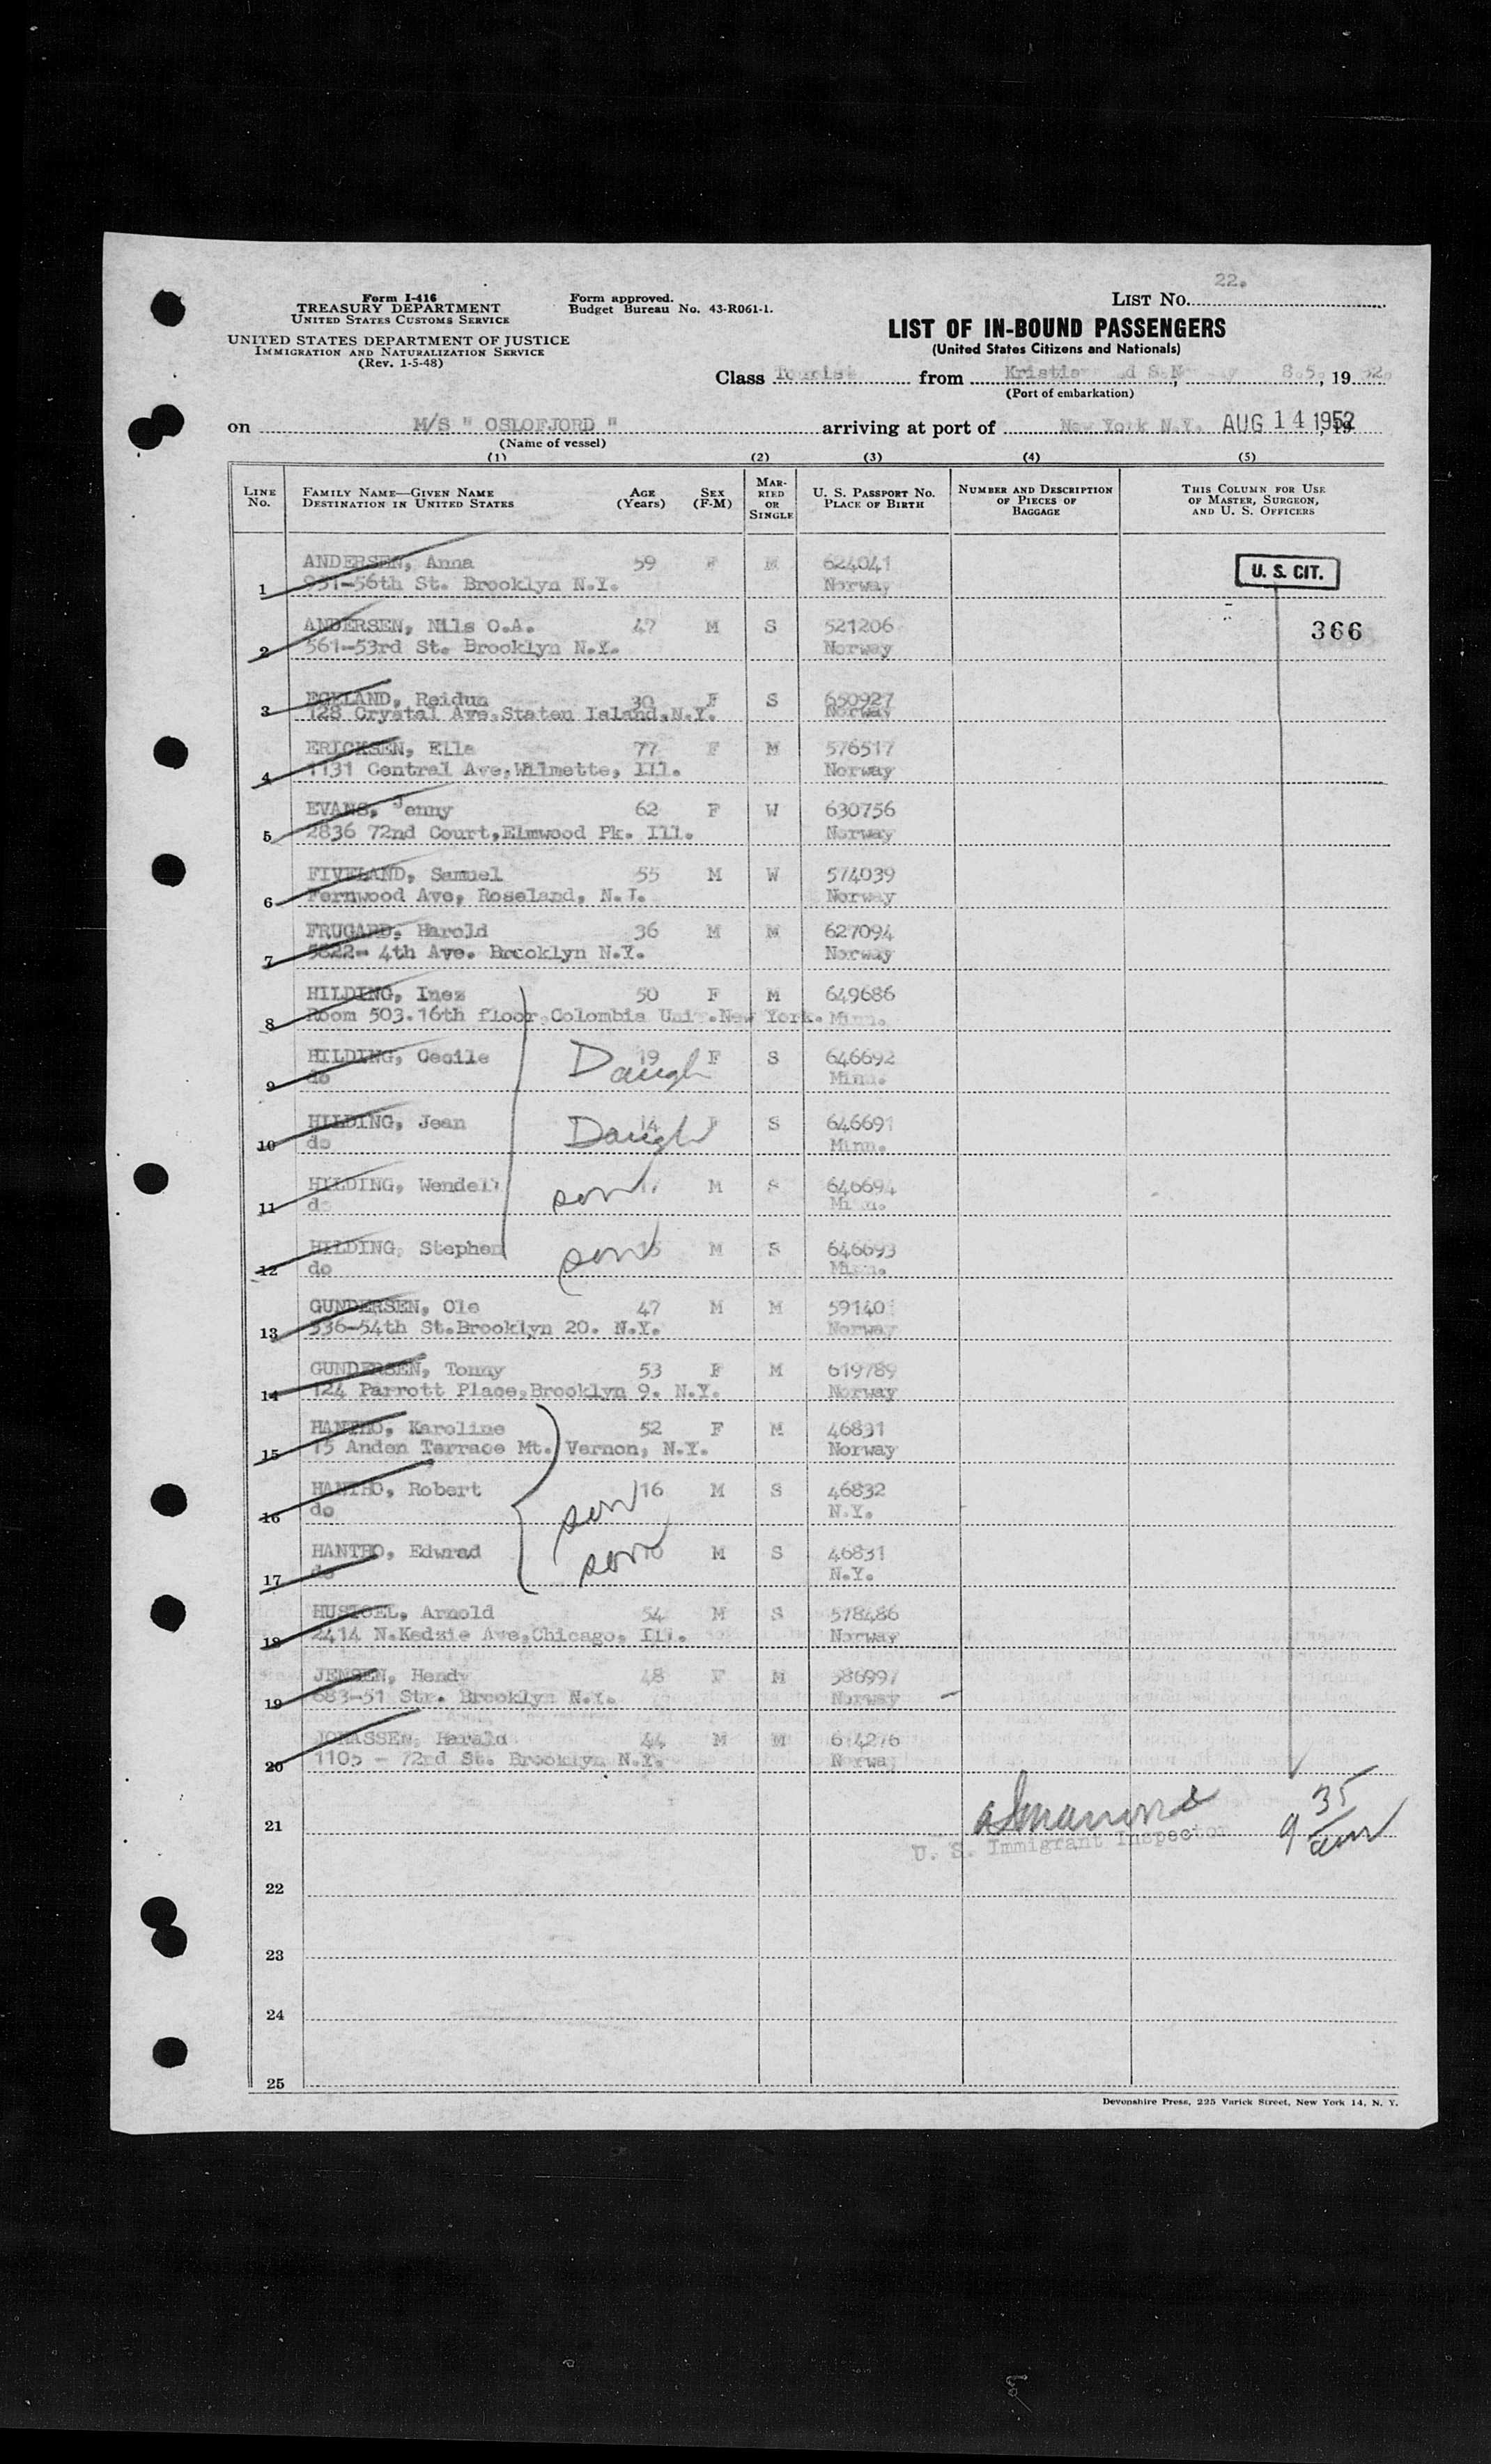 22.
Form I-416
TREASURY DEPARTMENT
UNITED STATES CUSTOMS SERVICE
UNITED STATES DEPARTMENT OF JUSTICE
IMMIGRATION AND NATURALIZATION SERVICE
(Rev. 1-5-48)
Form approved.
Budget Bureau No. 43-R061-1.
LIST NO.
LIST OF IN-BOUND PASSENGERS
(United States Citizens and Nationals)
Class Tourist from 8.5, 19 52.
(Port of embarkation)
on M/S " OSLOFJORD " arriving at port of New York N.Y. AUG 14 1952
(Name of vessel)
(1) (2) (3) (4) (5)
LINE NO. FAMILY NAME—GIVEN NAME DESTINATION IN UNITED STATES AGE (YEARS) SEX (F-M) MARRIED OR SINGLE U. S. PASSPORT NO. PLACE OF BIRTH NUMBER AND DESCRIPTION OF PIECES OF BAGGAGE THIS COLUMN FOR USE OF MASTER, SURGEON, AND U. S. OFFICERS
ANDERSEN, Anna 59 F M 624041 U. S. CIT.
1 931-56th St. Brooklyn N.Y. Norway
ANDERSEN, Nils O.A. 47 M S 521206 366
2 561-53rd St. Brooklyn N.Y. Norway
3 EGELAND, Reidun 30 F S 650927
128 Crystal Ave,Staten Island,N.Y. Norway
ERICKSEN, Elle 77 F M 576517
4 1131 Central Ave,Wilmette, Ill. Norway
EVANS, Jenny 62 F W 630756
5 2836 72nd Court,Elmwood Pk. Ill. Norway
FIVELAND, Samuel 55 M W 574039
6 Fernwood Ave, Roseland, N.J. Norway
FRUGARD, Harold 36 M M 627094
7 5822- 4th Ave. Brooklyn N.Y. Norway
HILDING, Inez 50 F M 649686
8 Room 503.16th floor,Colombia Univ.New York. Minn.
HILDING, Cecile Daugh 19 F S 646692
9 do Minn.
HILDING, Jean Daugh 14 F S 646691
10 do Minn.
HILDING, Wendell son 17 M S 646694
11 do Minn.
HILDING, Stephen son 15 M S 646693
12 do Minn.
GUNDERSEN, Ole 47 M M 59140
13 536-54th St.Brooklyn 20. N.Y. Norway
GUNDERSEN, Tonny 53 F M 619789
14 124 Parrott Place,Brooklyn 9. N.Y. Norway
HANTHO, Karoline 52 F M 46831
15 15 Anden Terrace Mt. Vernon, N.Y. Norway
HANTHO, Robert son 16 M S 46832
16 do N.Y.
HANTHO, Edwrad son 10 M S 46831
17 do N.Y.
HUSTOEL, Arnold 54 M S 578486
18 2414 N.Kedzie Ave,Chicago, Ill. Norway
JENSEN, Hendy 48 F M 586997
19 683-51 Str. Brooklyn N.Y. Norway
JONASSEN, Harald 44 M M 614276
20 1105 - 72rd St. Brooklyn N.Y. Norway
21 9 35 am
U. S. Immigrant Inspector
22
23
24
25
Devonshire Press, 225 Varick Street, New York 14, N. Y.